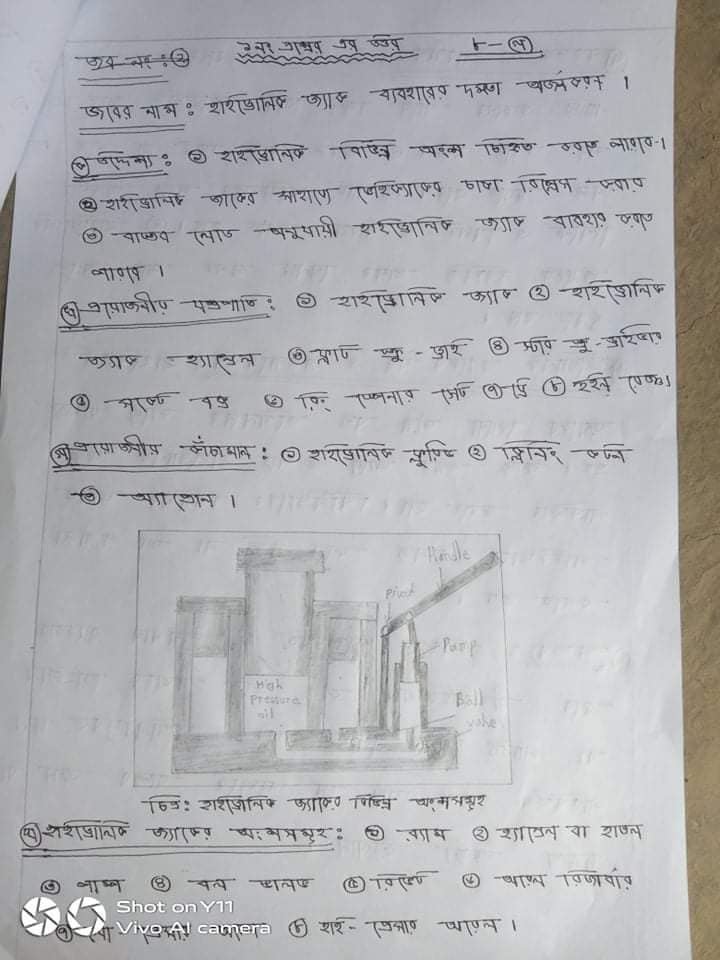 জব নং: ২ ২নং প্রশ্নের এর উত্তর ৮-৯
জবের নাম: হাইড্রোলিক জ্যাক ব্যবহারের দক্ষতা অর্জনকরণ ।
উদ্দেশ্য: ১ হাইড্রোলিক বিভিন্ন অংশ চিহ্নিত করতে পারবে।
২ হাইড্রোলিক জ্যাকের সাহায্যে ভেহিক্যালের চাকা করার
৩ বাস্তব লোড অনুযায়ী হাইড্রোলিক জ্যাক ব্যবহার করতে
পারবে ।
প্রয়োজনীয় যন্ত্রপাতি: ১ হাইড্রোলিক জ্যাক ২ হাইড্রোলিক
জ্যাক হ্যান্ডেল ৩ ফ্লাট স্ক্রু-ড্রাই ৪ স্টার স্ক্রু-ড্রাইভার
৫ বক্স ৬ রিং স্পেনার সেট ৭ ট্রে ৮ হুইল রেঞ্জ।
প্রয়োজনীয় কাঁচামাল: ১ হাইড্রোলিক ফ্লুইড ২ ক্লিনিং কটন
৩
Handle
Pivot
Pump
High
pressure
oil
Ball
valve
চিত্র: হাইড্রোলিক জ্যাকের বিভিন্ন অংশসমূহ
হাইড্রোলিক জ্যাকের অংশসমূহ: ১ র‍্যাম ২ হ্যান্ডেল বা হাতল
৩ পাম্প ৪ বল ভালভ ৫ ৬ অয়েল রিজার্ভার
৭ লো প্রেসার অয়েল ৮ হাই-প্রেসার অয়েল ।
Shot on Y11
Vivo AI camera